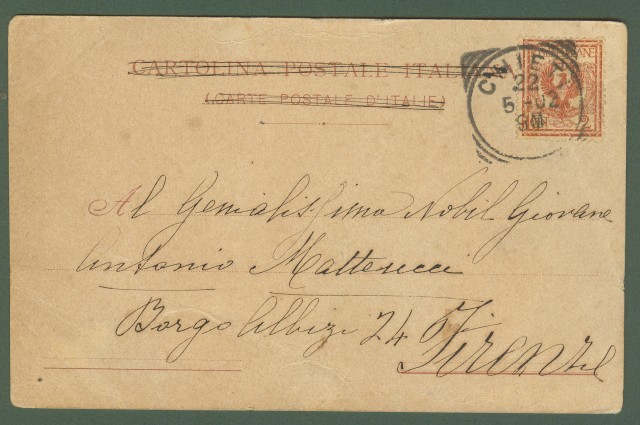 CARTOLINA POSTALE ITAL
(CARTE POSTALE D'ITALIE)
22
5 -02
9M
2
Al Genialissimo Nobil Giovane
Antonio Matteucci
Borgo Albizi 24 Firenze